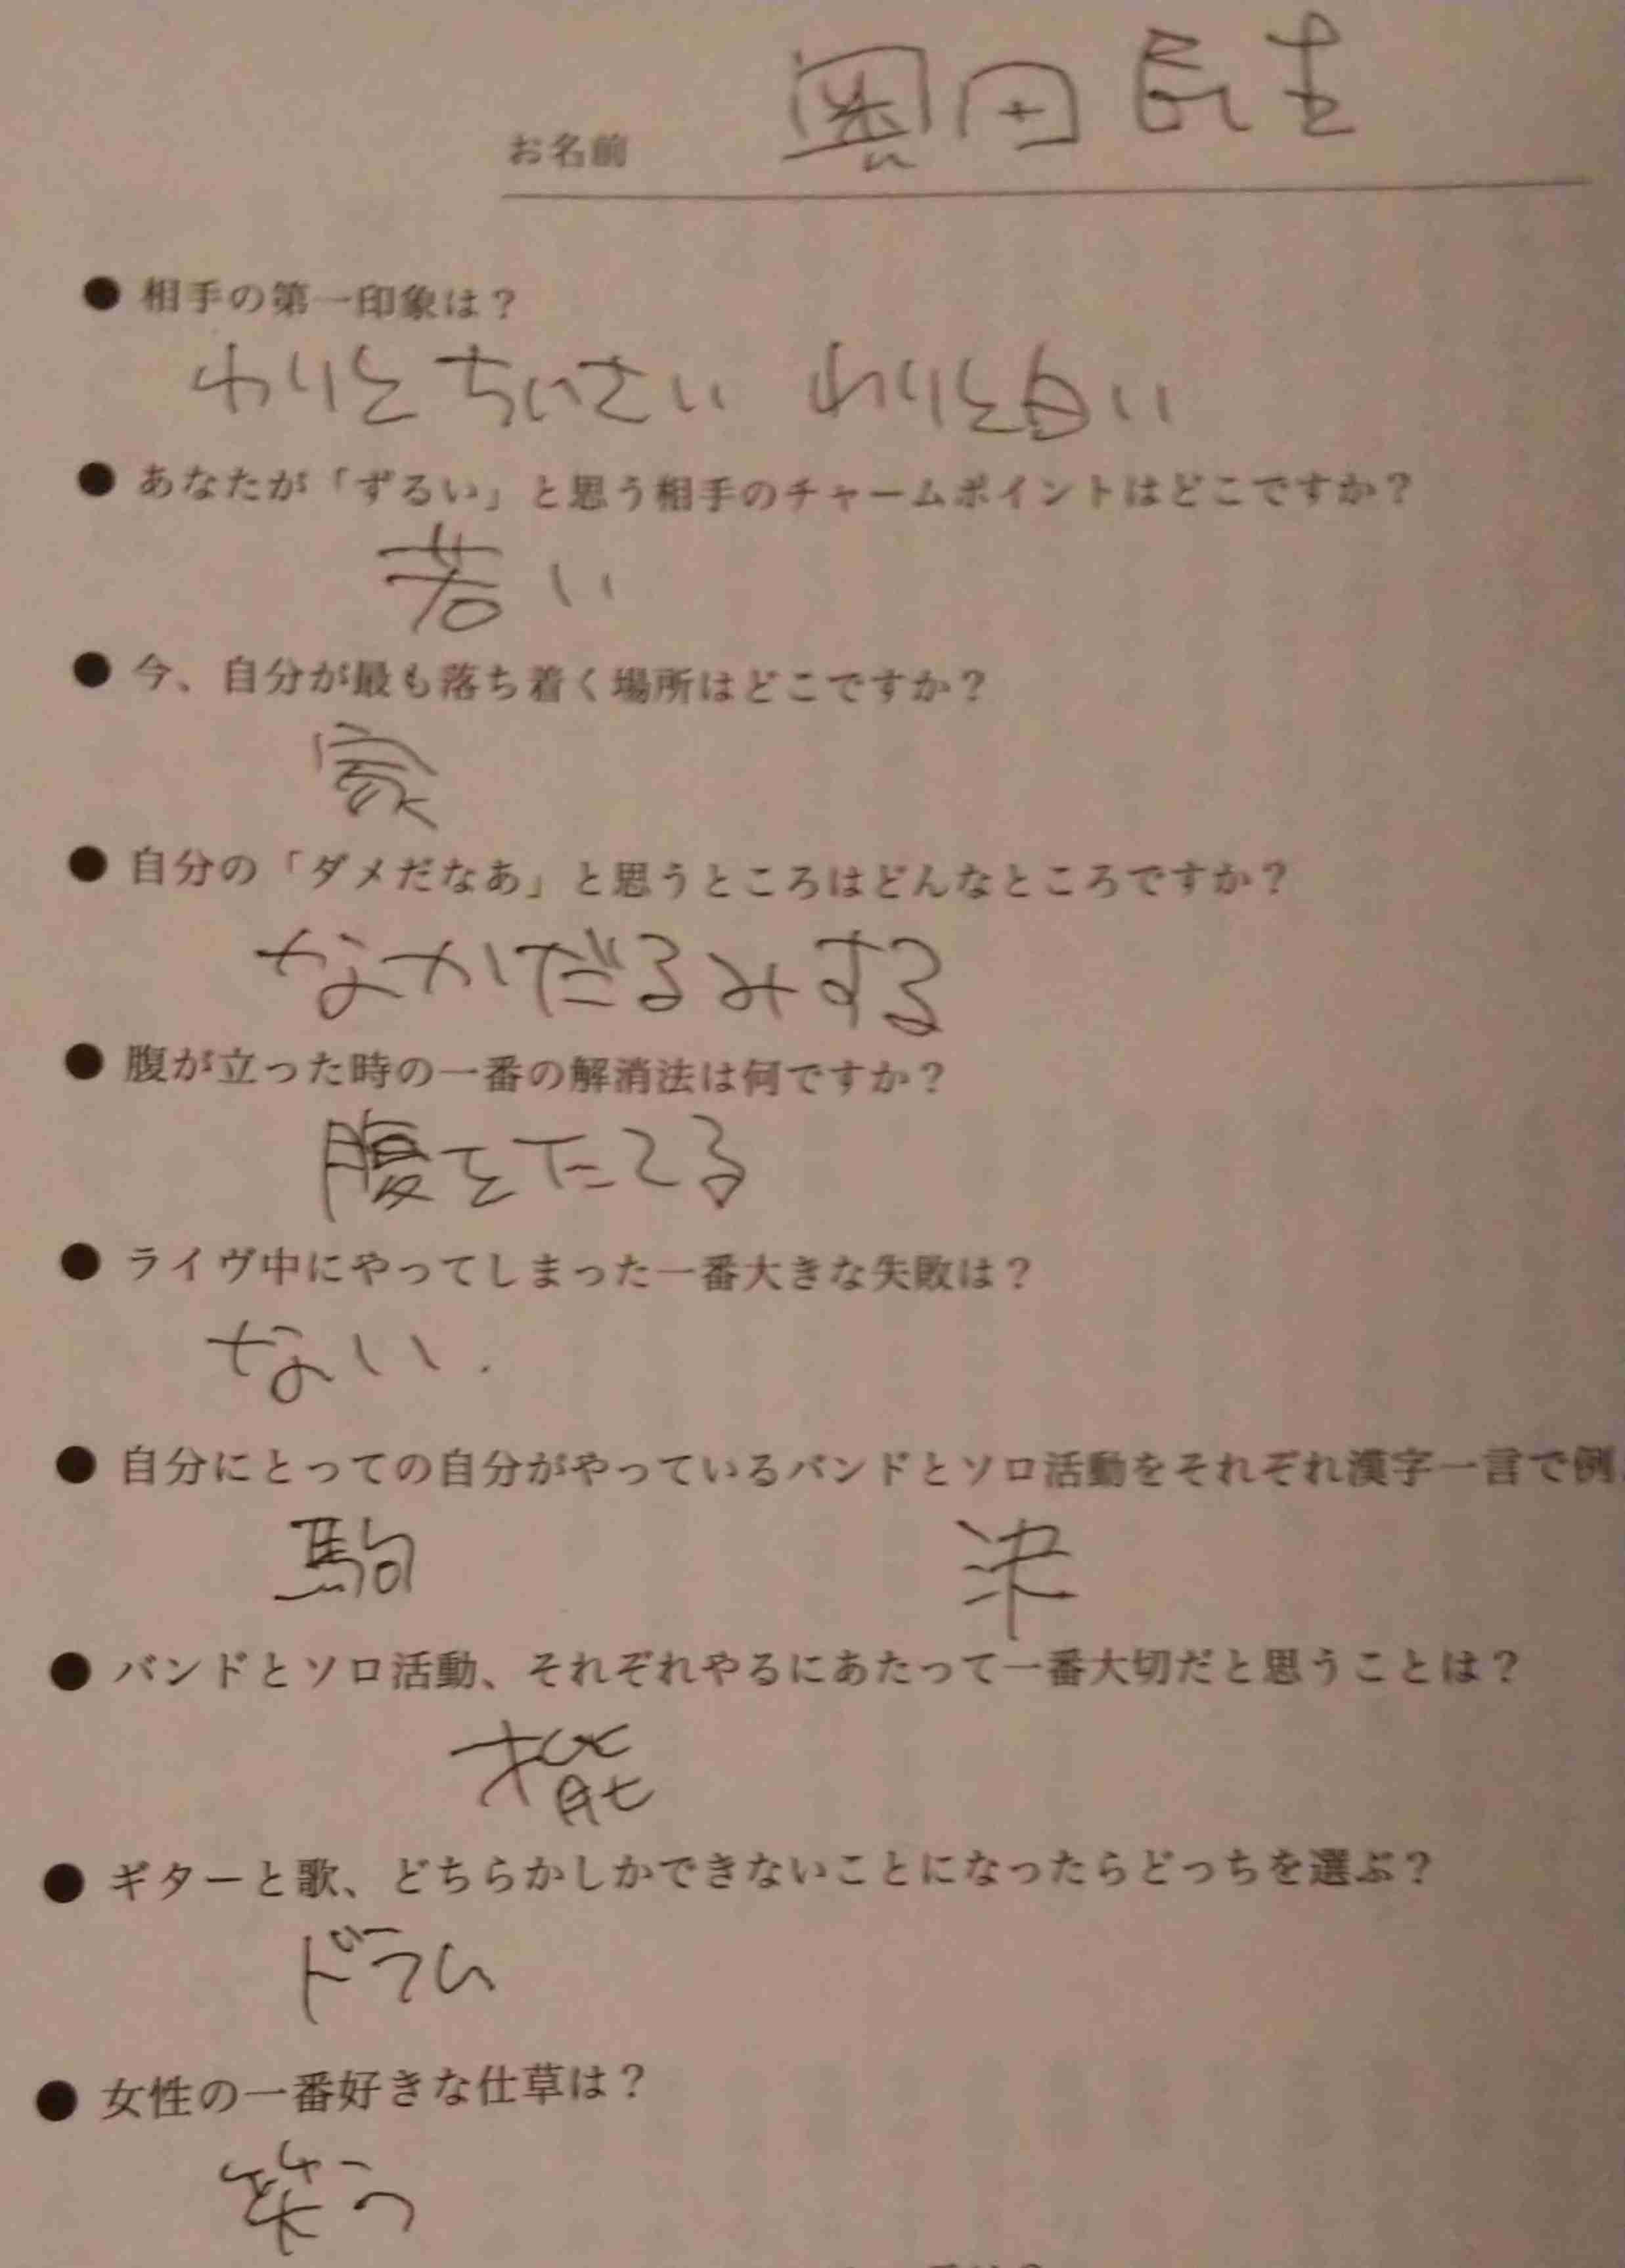 お名前 奥田民生
●相手の第一印象は?
わりとちいさい わりと白い
●あなたが「ずるい」と思う相手のチャームポイントはどこですか?
若い
●今、自分が最も落ち着く場所はどこですか?
家
●自分の「ダメだなあ」と思うところはどんなところですか?
なかだるみする
●腹が立った時の一番の解消法は何ですか?
腹をたてる
●ライヴ中にやってしまった一番大きな失敗は?
ない.
●自分にとっての自分がやっているバンドとソロ活動をそれぞれ漢字一言で例
駒
●バンドとソロ活動、それぞれやるにあたって一番大切だと思うことは?
才能
●ギターと歌、どちらかしかできないことになったらどっちを選ぶ?
ドラム
●女性の一番好きな仕草は?
笑う